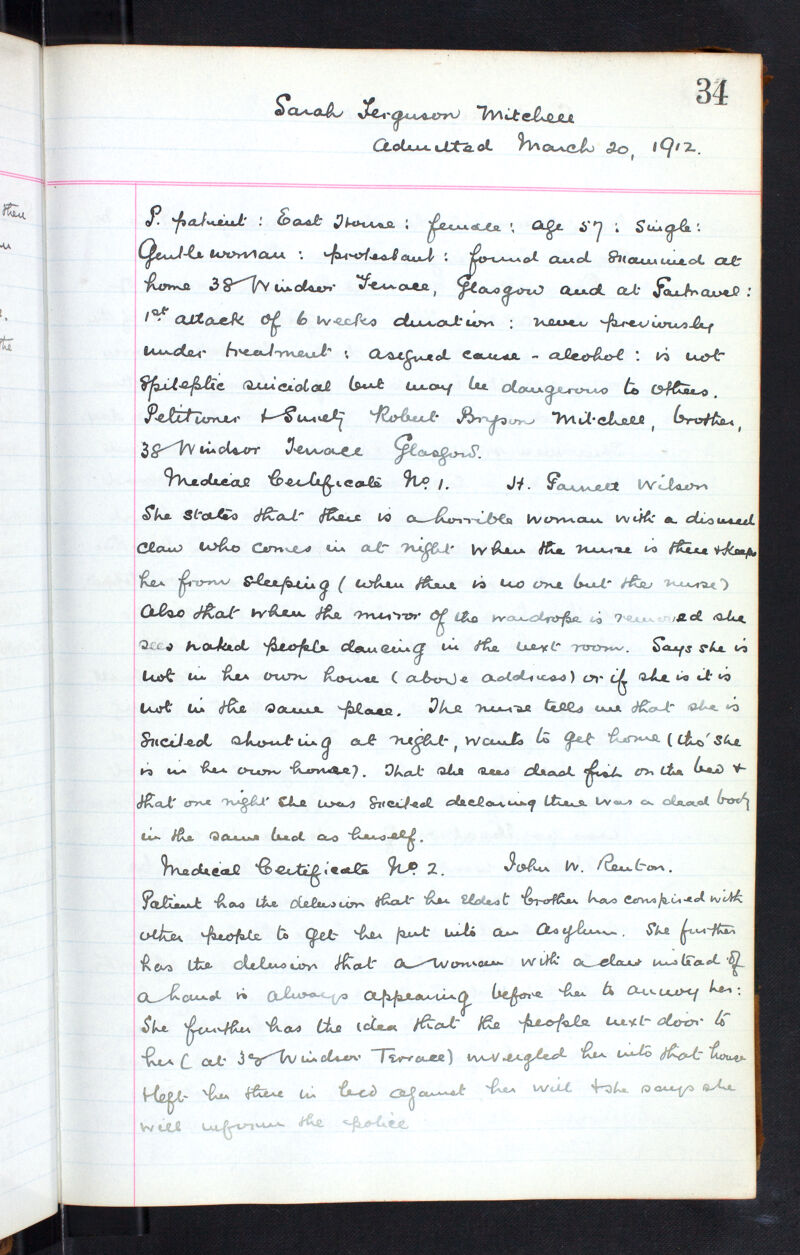 34
Sarah Ferguson Mitchell
Admitted March 20, 1912.
P. patient : East House : female : age 57 : Single :
Gentlewoman : protestant : found and examined at
home 38 Windsor Terrace, Glasgow and at Gartnavel :
1st attack of 6 weeks duration : never previously
under treatment : assigned cause - alcohol : is not
Epileptic suicidal but may be dangerous to others.
Petitioner & Surety Robert Bryson Mitchell, brother,
38 Windsor Terrace Glasgow.
Medical Certificate No 1. H. Garnett Wilson
She states that there is a horrible woman with a disused
claw who comes in at night when the nurse is there & keeps
her from sleeping (when there is no one but the nurse)
Also that when the mirror of the wardrope is removed she
sees naked people dancing in the next room. Says she is
not in her own house (above address) or if she is it is
not in the same place. The nurse tells me that she is
Excited shouting at night, wants to get home (tho' she
is in her own house). That she sees dead fish on the bed &
that one night she was Excited declaring there was a dead body
in the same bed as herself.
Medical Certificate No 2. John W. Renton.
Patient has the delusion that her Eldest brother has conspired with
other people to get her put into an Asylum. She further
has the delusion that a woman with a claw instead of
a hand is always appearing before her to annoy her :
She further has the idea that the people next door to
her (at 38 Windsor Terrace) inveigled her into that house
& left her there in bed against her will & she says she
will inform the police
then
the